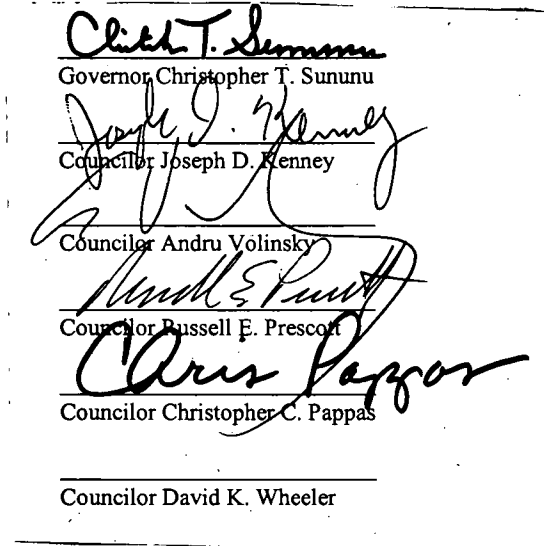 Governor Christopher T. Sununu
Joseph D. Kenney
Councilor Joseph D. Kenney
Councilor Andru Volinsky
Councilor Russell E. Prescott
Chris Pappas
Councilor Christopher C. Pappas
Councilor David K. Wheeler